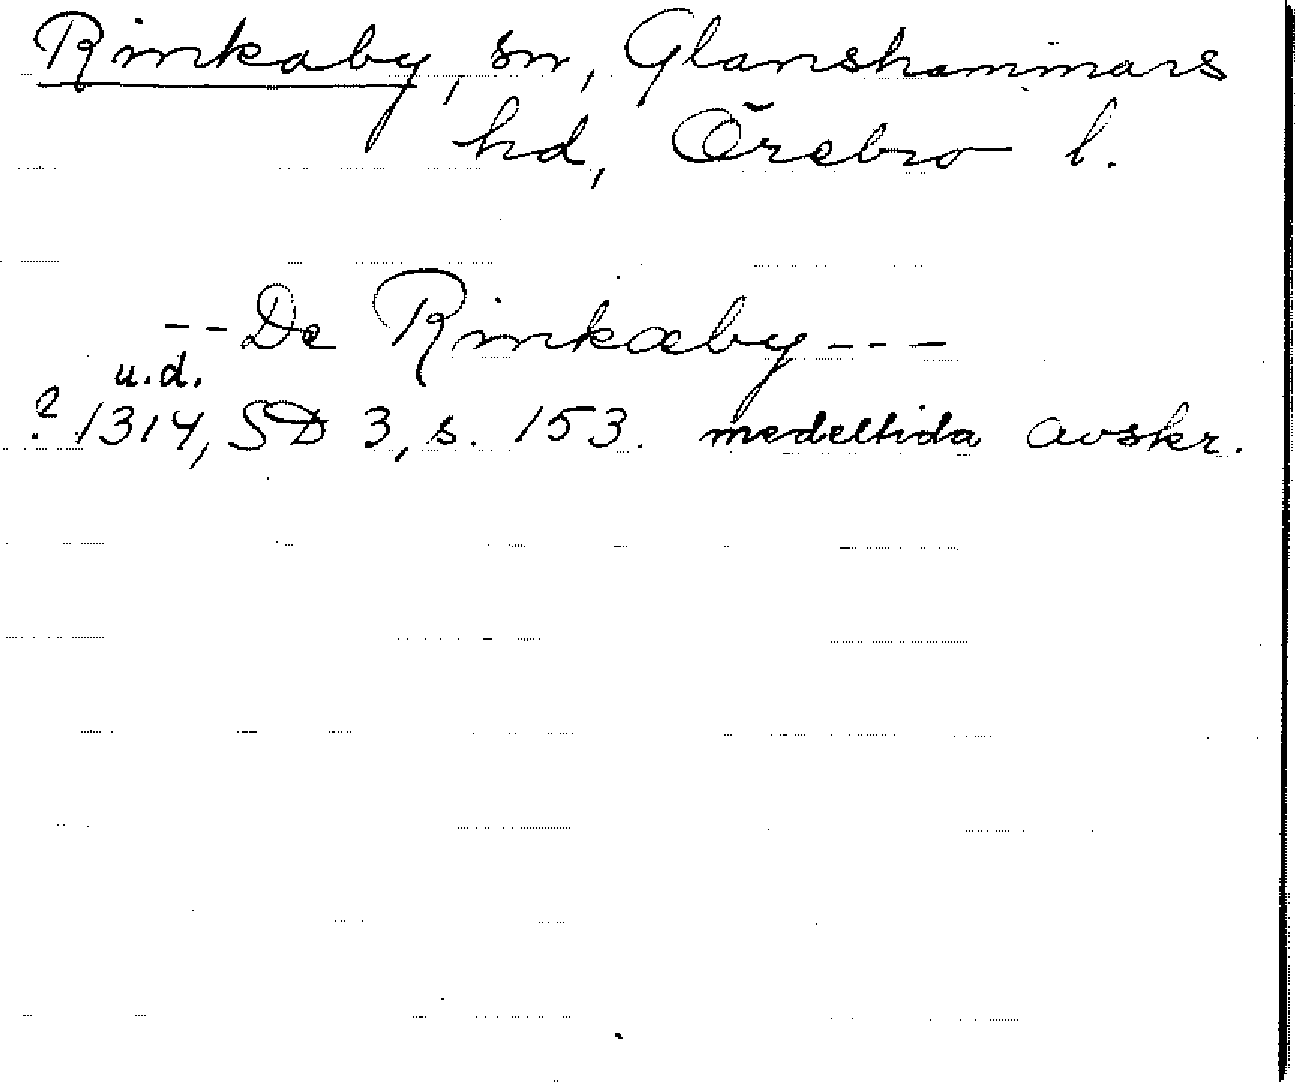 Rinkaby, sn, Glanshammars
hd, Örebro l.
-- De Rinkæby ---
u.d.
? 1314, SD 3, s. 153. medeltida avskr.